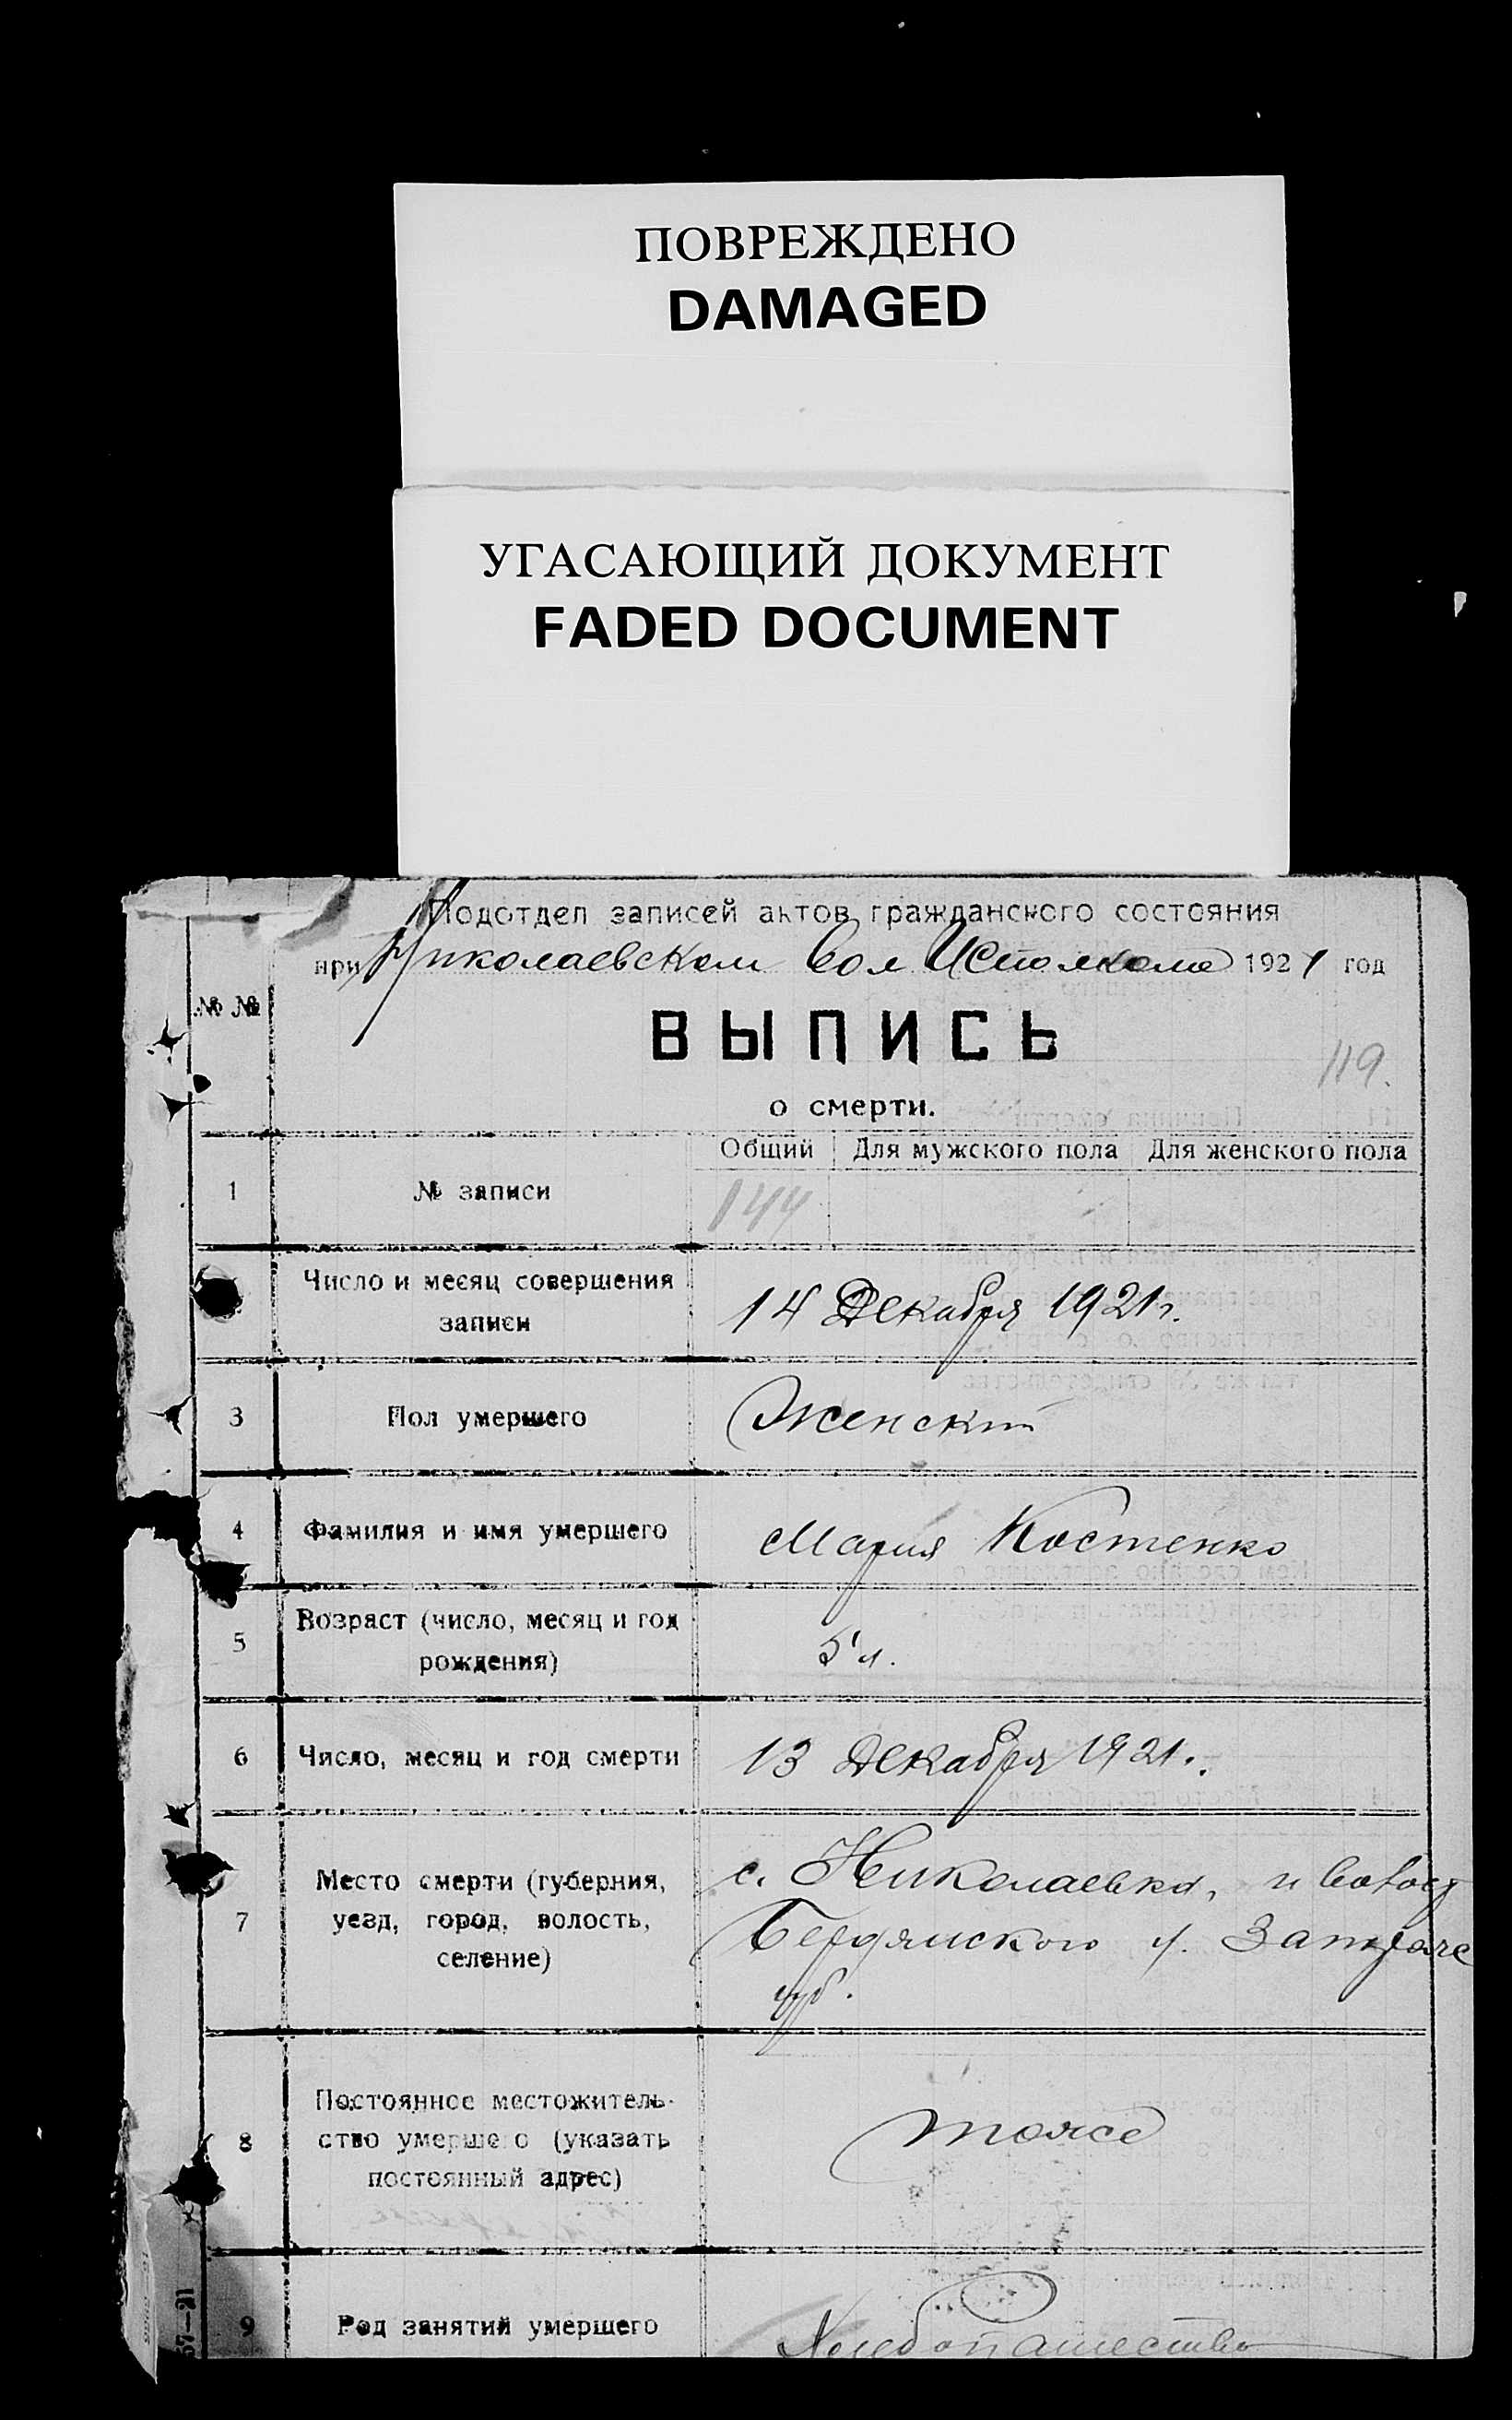 ПОВРЕЖДЕНО
DAMAGED
УГАСАЮЩИЙ ДОКУМЕНТ
FADED DOCUMENT
Подотдел записей актов гражданского состояния
при Николаевском Вол Исполкоме 1921 год
№ №
ВЫПИСЬ
119.
о смерти.
Общий Для мужского пола Для женского пола
1 № записи 144
Число и месяц совершения
записи
14 Декабря 1921 г.
3 Пол умершего Женский
4 Фамилия и имя умершего Мария Костенко
5 Возраст (число, месяц и год
рождения)
5 л.
6 Число, месяц и год смерти 13 Декабря 1921.
7 Место смерти (губерния,
уезд, город, волость,
селение)
с. Николаевка, и волост
Бердянского у.
губ.
8 Постоянное местожитель-
ство умершего (указать
постоянный адрес)
тоже
57—21
9 Род занятий умершего Хлебопашество